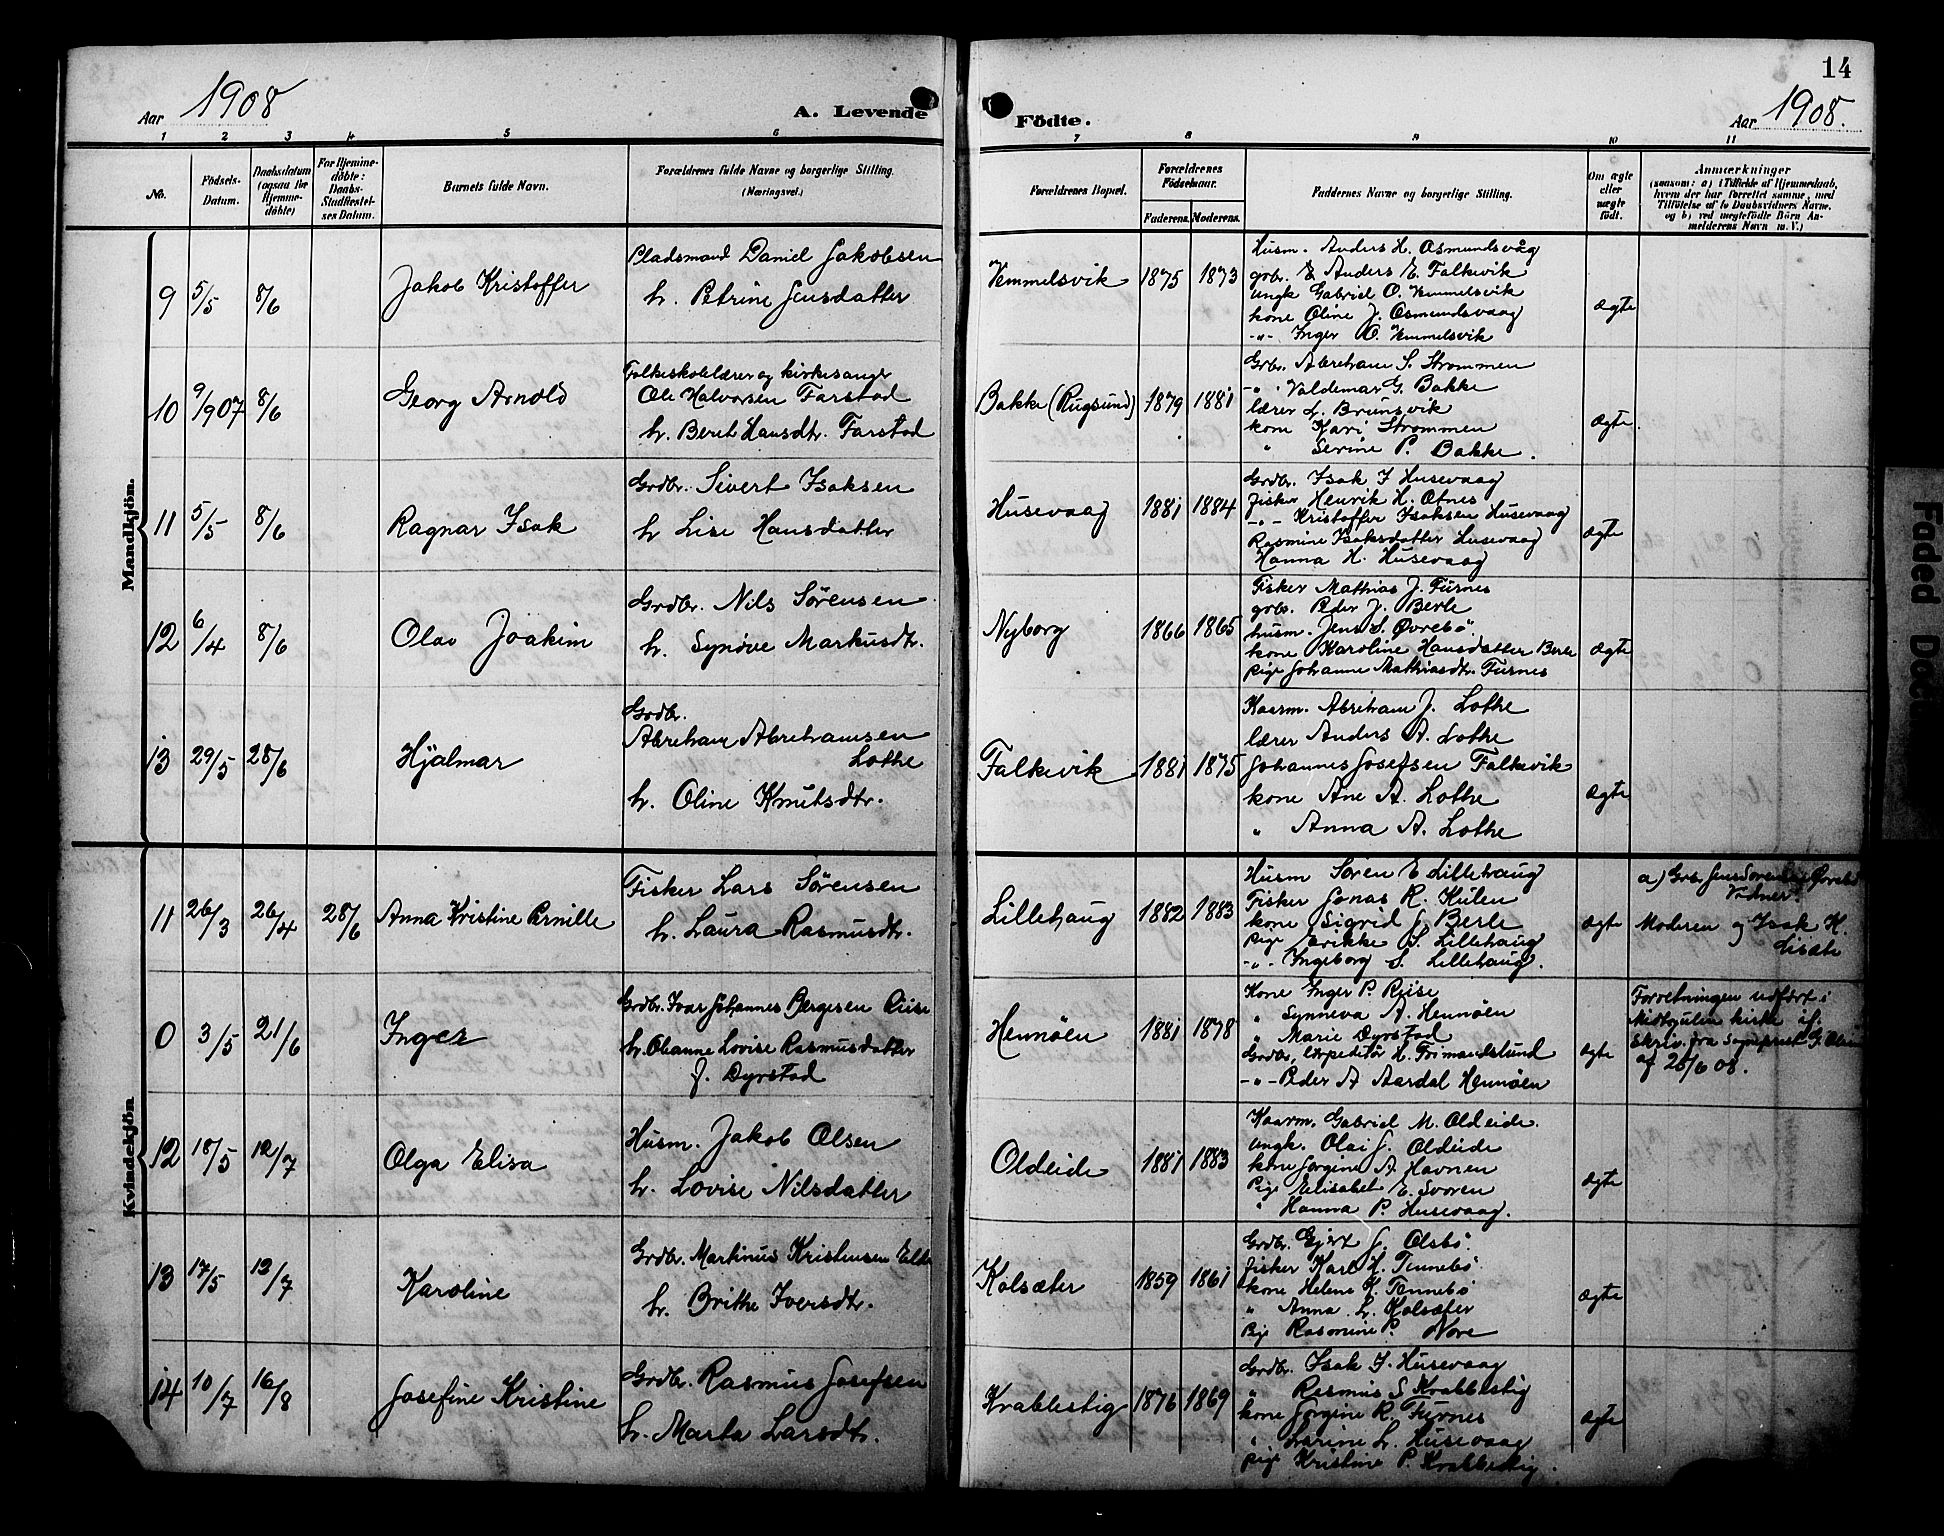 14
Aar 1908
A. Levende
Födte.
Aar 1908.
1 2 3 4 5 6 7 8 9 10 11
No.
Födsels-Datum.
Daabsdatum (ogsaa ved Hjemme-döbte)
For Hjemme-döbte: Daabs-Stadfæstel-ses Datum.
Barnets fulde Navn.
Forældrenes fulde Navne og borgerlige Stilling. (Næringsvei.)
Forældrenes Bopæl.
Forældrenes Födselsaar.
Faderens. Moderens.
Faddernes Navne og borgerlige Stilling.
Om ægte eller uægte födt.
Anmærkninger
(saasom: a) i Tilfælde af Hjemmedaab,
hvem der har forrettet samme, med
Tilföielse af to Daabsvidners Navne.
og b) ved uægtefödte Börn An-
melderens Navn m. V.)
Mandkjön.
9 5/5 8/6
Jakob Kristoffer
Pladsmand Daniel Jakobsen
h. Petrine Jensdatter
Vemmelsvik 1875 1873
Husm. Anders H. Osmundsvåg
grb. Anders E. Falkevik
ungk Gabriel O. Vemmelsvik
kone Oline J. Osmundsvaag
-"- Inger O. Vemmelsvik
ægte
10 9/9 07 8/6
Georg Arnold
Folkeskolelærer og kirkesanger
Ole Halvorsen Farstad
h. Beret Hansdt. Farstad
Bakke (Rugsund) 1879 1881
Grb. Abreham S. Strømmen
-"- Valdemar G. Bakke
lærer L. Brunsvik
kone Kari Strømmen
" Serine P. Bakke.
ægte
11 5/5 8/6
Ragnar Isak
Grdbr. Sivert Isaksen
h. Lise Hansdatter
Husevaag 1881 1884
Grdb. Isak I Husevaag
fisker Henrik H. Otnes
-"- Kristoffer Isaksen Husevaag
Rasmine Isaksdatter Husevaag
Hanna H. Husevaag
ægte
12 6/4 8/6
Olav Joakim
Grdbr. Nils Sørensen
h. Synøve Markusdt.
Nyborg 1866 1865
Fisker Mathias J. Furnes
grb. Peder J. Berle
husm. Jens S. Øvrebö
kone Karoline Hansdatter Berle
pige Johanne Mathiasdt. Furnes
ægte
13 29/5 28/6
Hjalmar
Grdbr.
Abreham Abrehamsen
Lothe
h. Oline Knutsdtr.
Falkevik 1881 1875
Kaarm. Abreham J. Lothe
lærer Anders A. Lothe
Johannes Josefsen Falkevik
kone Ane A. Lothe
" Anna A. Lothe
ægte
Kvindekjön
11 26/3 26/4 28/6
Anna Kristine Pernille
Fisker Lars Sørensen
h. Laura Rasmusdt.
Lillehaug 1882 1883
Husm Søren E Lillehaug
Fisker Jonas R. Hulen
kone Sigrid J Berle
pige Erikke S. Lillehaug
-"- Ingeborg S. Lillehaug.
ægte
a) Grb. Jens Sørensen Øvrebö
Vidner:
Moderen og Isak H.
Lisæte
0 3/5 21/6
Inger
Grdbr. Ivar Johannes Børgesen Riise
h. Oleanne Lovise Rasmusdatter
f. Dyrstad
Hennöen 1881 1878
Kone Inger P. Riise
" Synneva A. Hennöen
" Marie Dyrstad
Grdbr, Expeditör H. Frimandslund
-"- Peder A Aardal Hennöen
ægte
Forretningen udfört i
Midtgulen kirke if.
skriv. fra Sogneprest G. Olsen
af 28/6 08.
12 18/5 12/7
Olga Elisa
Husm. Jakob Olsen
h. Lovise Nilsdatter
Oldeide 1881 1883
Kaarm. Gabriel M. Oldeide.
ungk. Olai J. Oldeide
kone Jørgine A Havnen
Pige Elisabet E. Svoren
" Hanna P. Husevaag.
ægte
13 17/5 12/7
Karoline
Grdbr. Martinus Kristensen Elde
h. Brithe Iversdtr.
Kolsæter 1859 1861
Grdbr. Gjert J. Olsbö.
fisker Karl H. Tennebö
kone Helene K. Tennebö
" Anna L. Kolsæter
Pige Rasmine P. Nore
ægte
14 10/7 16/8
Josefine Kristine
Grdbr. Rasmus Josefsen
h. Marta Larsdtr.
Krablestig 1876 1869
Grdbr. Isak I. Husevaag
" Rasmus S Krablestig
kone Jørgine R. Furnes
" Larine L. Husevaag
pige Kristine P. Krablestig.
ægte
Faded Doc